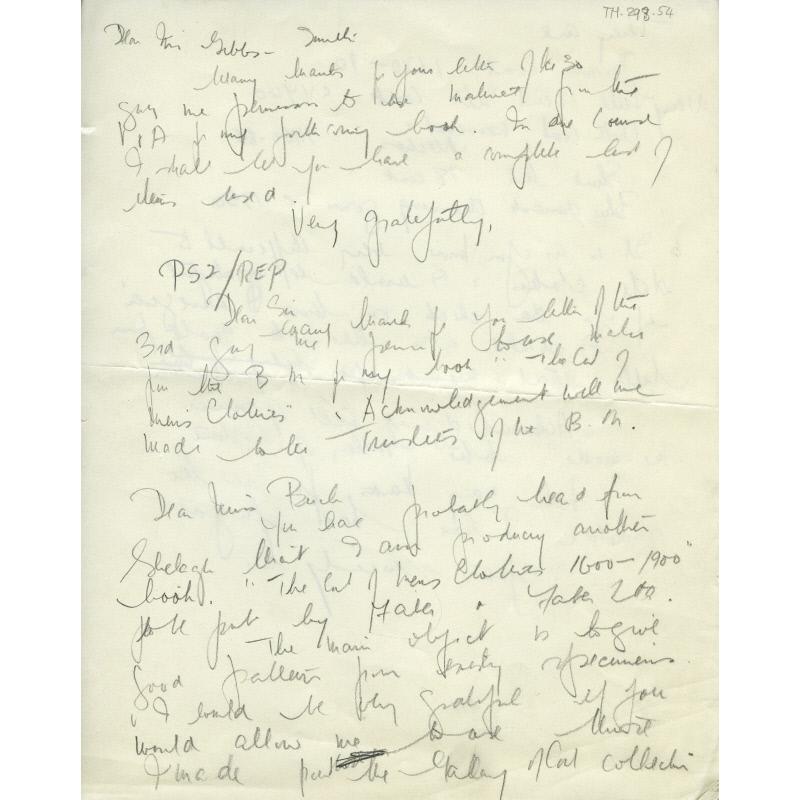 TH.298.54
Dear Mr Gibbs-Smith
Many thanks for your letter of the 30
giving me permission to use material from the
V&A for my forthcoming book. In due course
I shall let you have a complete list of
items used.
Very gratefully,
PS2/REP
Dear Sir
Many thanks for your letter of the
3rd giving me to use
from the B M for my book "The Cut of
Men's Clothes". Acknowledgement will be
made to the Trustees of the B.M.
Dear Miss Buck
You have probably heard from
Shelagh that I am producing another
book. "The Cut of Men's Clothes 1600-1900"
to be pub by Faber & Faber Ltd.
The main object is to give
good patterns from specimens.
I would be very grateful if you
would allow me to use those
I made from the Gallery of Cost collection